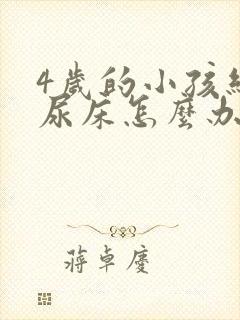 4歲的小孩經
尿床怎麼办
蔣卓慶